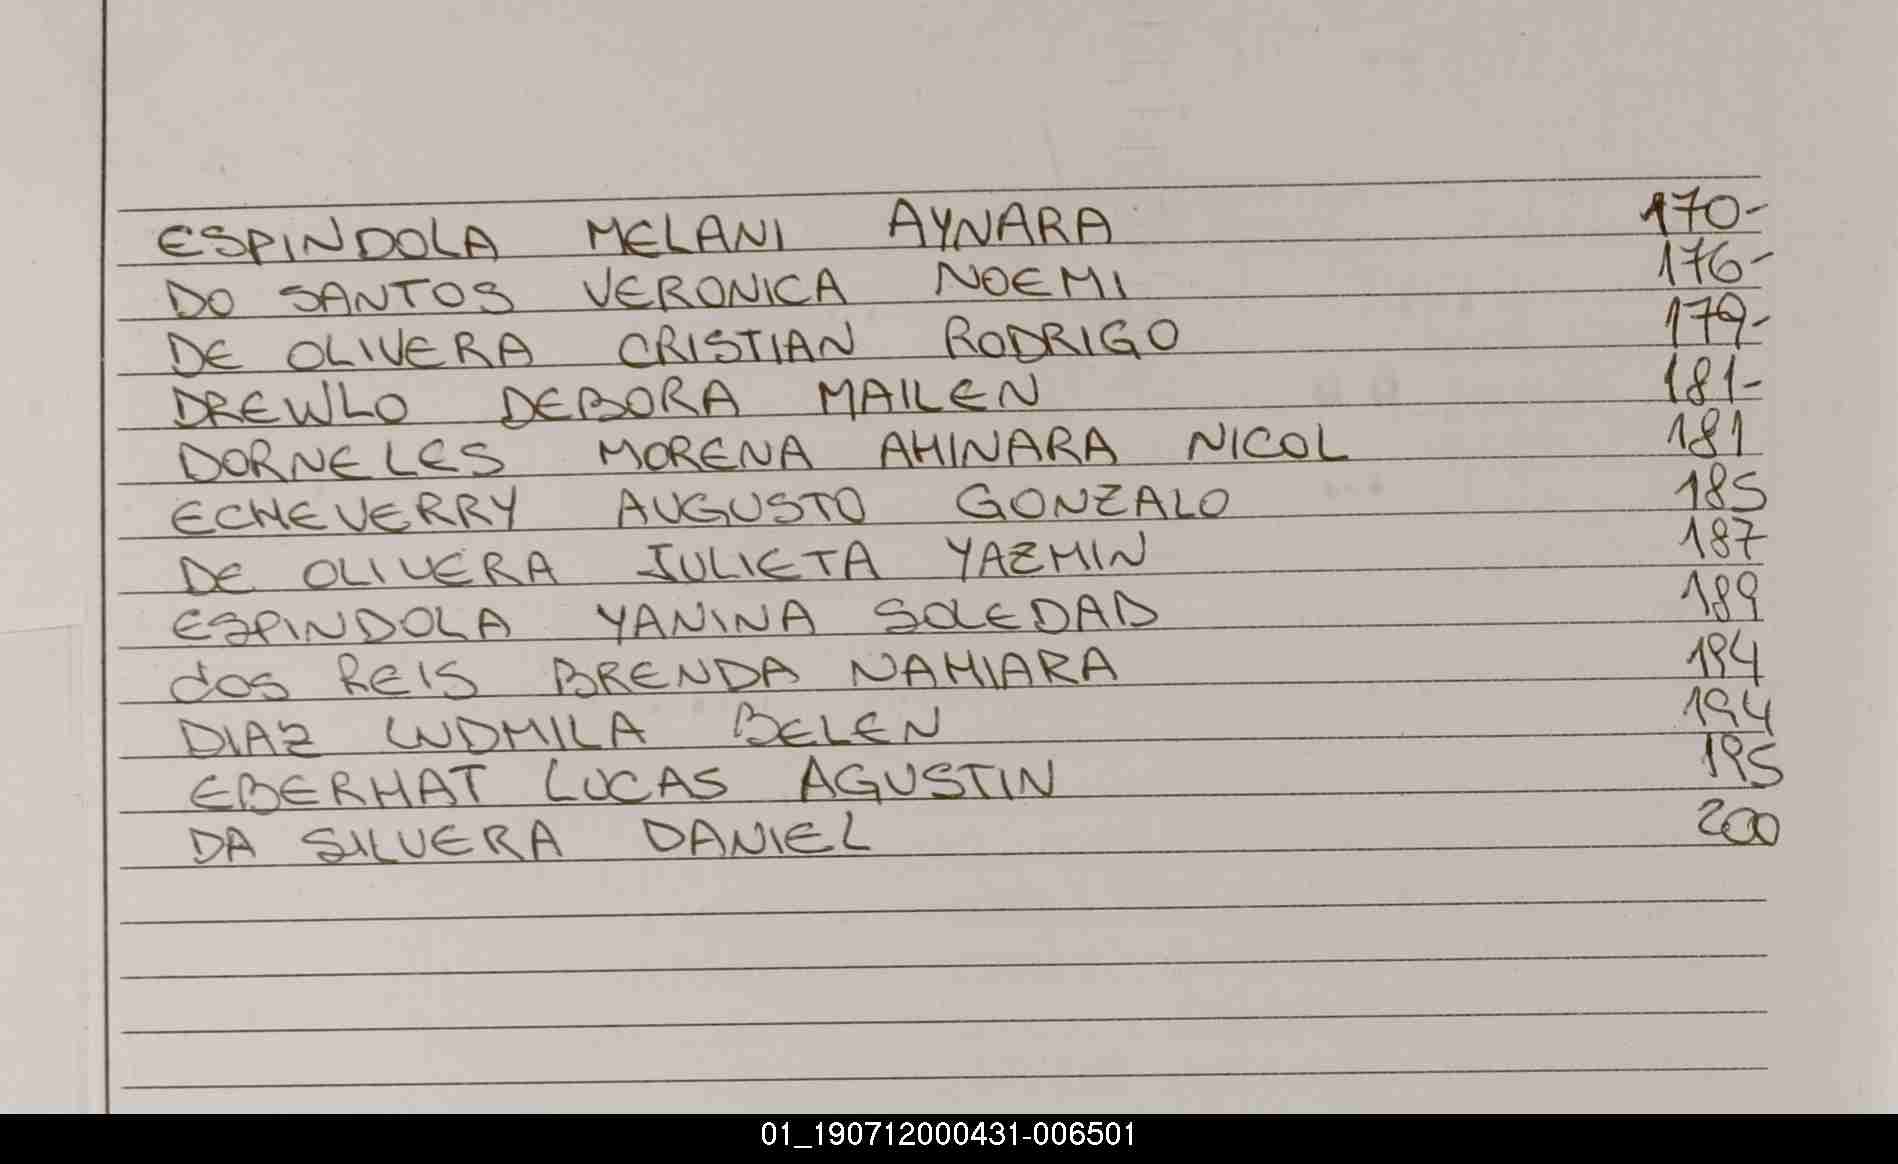 ESPINDOLA MELANI AYNARA 170-
DO SANTOS VERONICA NOEMI 176-
DE OLIVERA CRISTIAN RODRIGO 179-
DREWLO DEBORA MAILEN 181-
DORNELES MORENA AHINARA NICOL 181
ECHEVERRY AUGUSTO GONZALO 185
DE OLIVERA JULIETA YAZMIN 187
ESPINDOLA YANINA SOLEDAD 189
dos REIS BRENDA NAHIARA 194
DIAZ LUDMILA BELEN 194
EBERHAT LUCAS AGUSTIN 195
DA SILVERA DANIEL 200
01_190712000431-006501